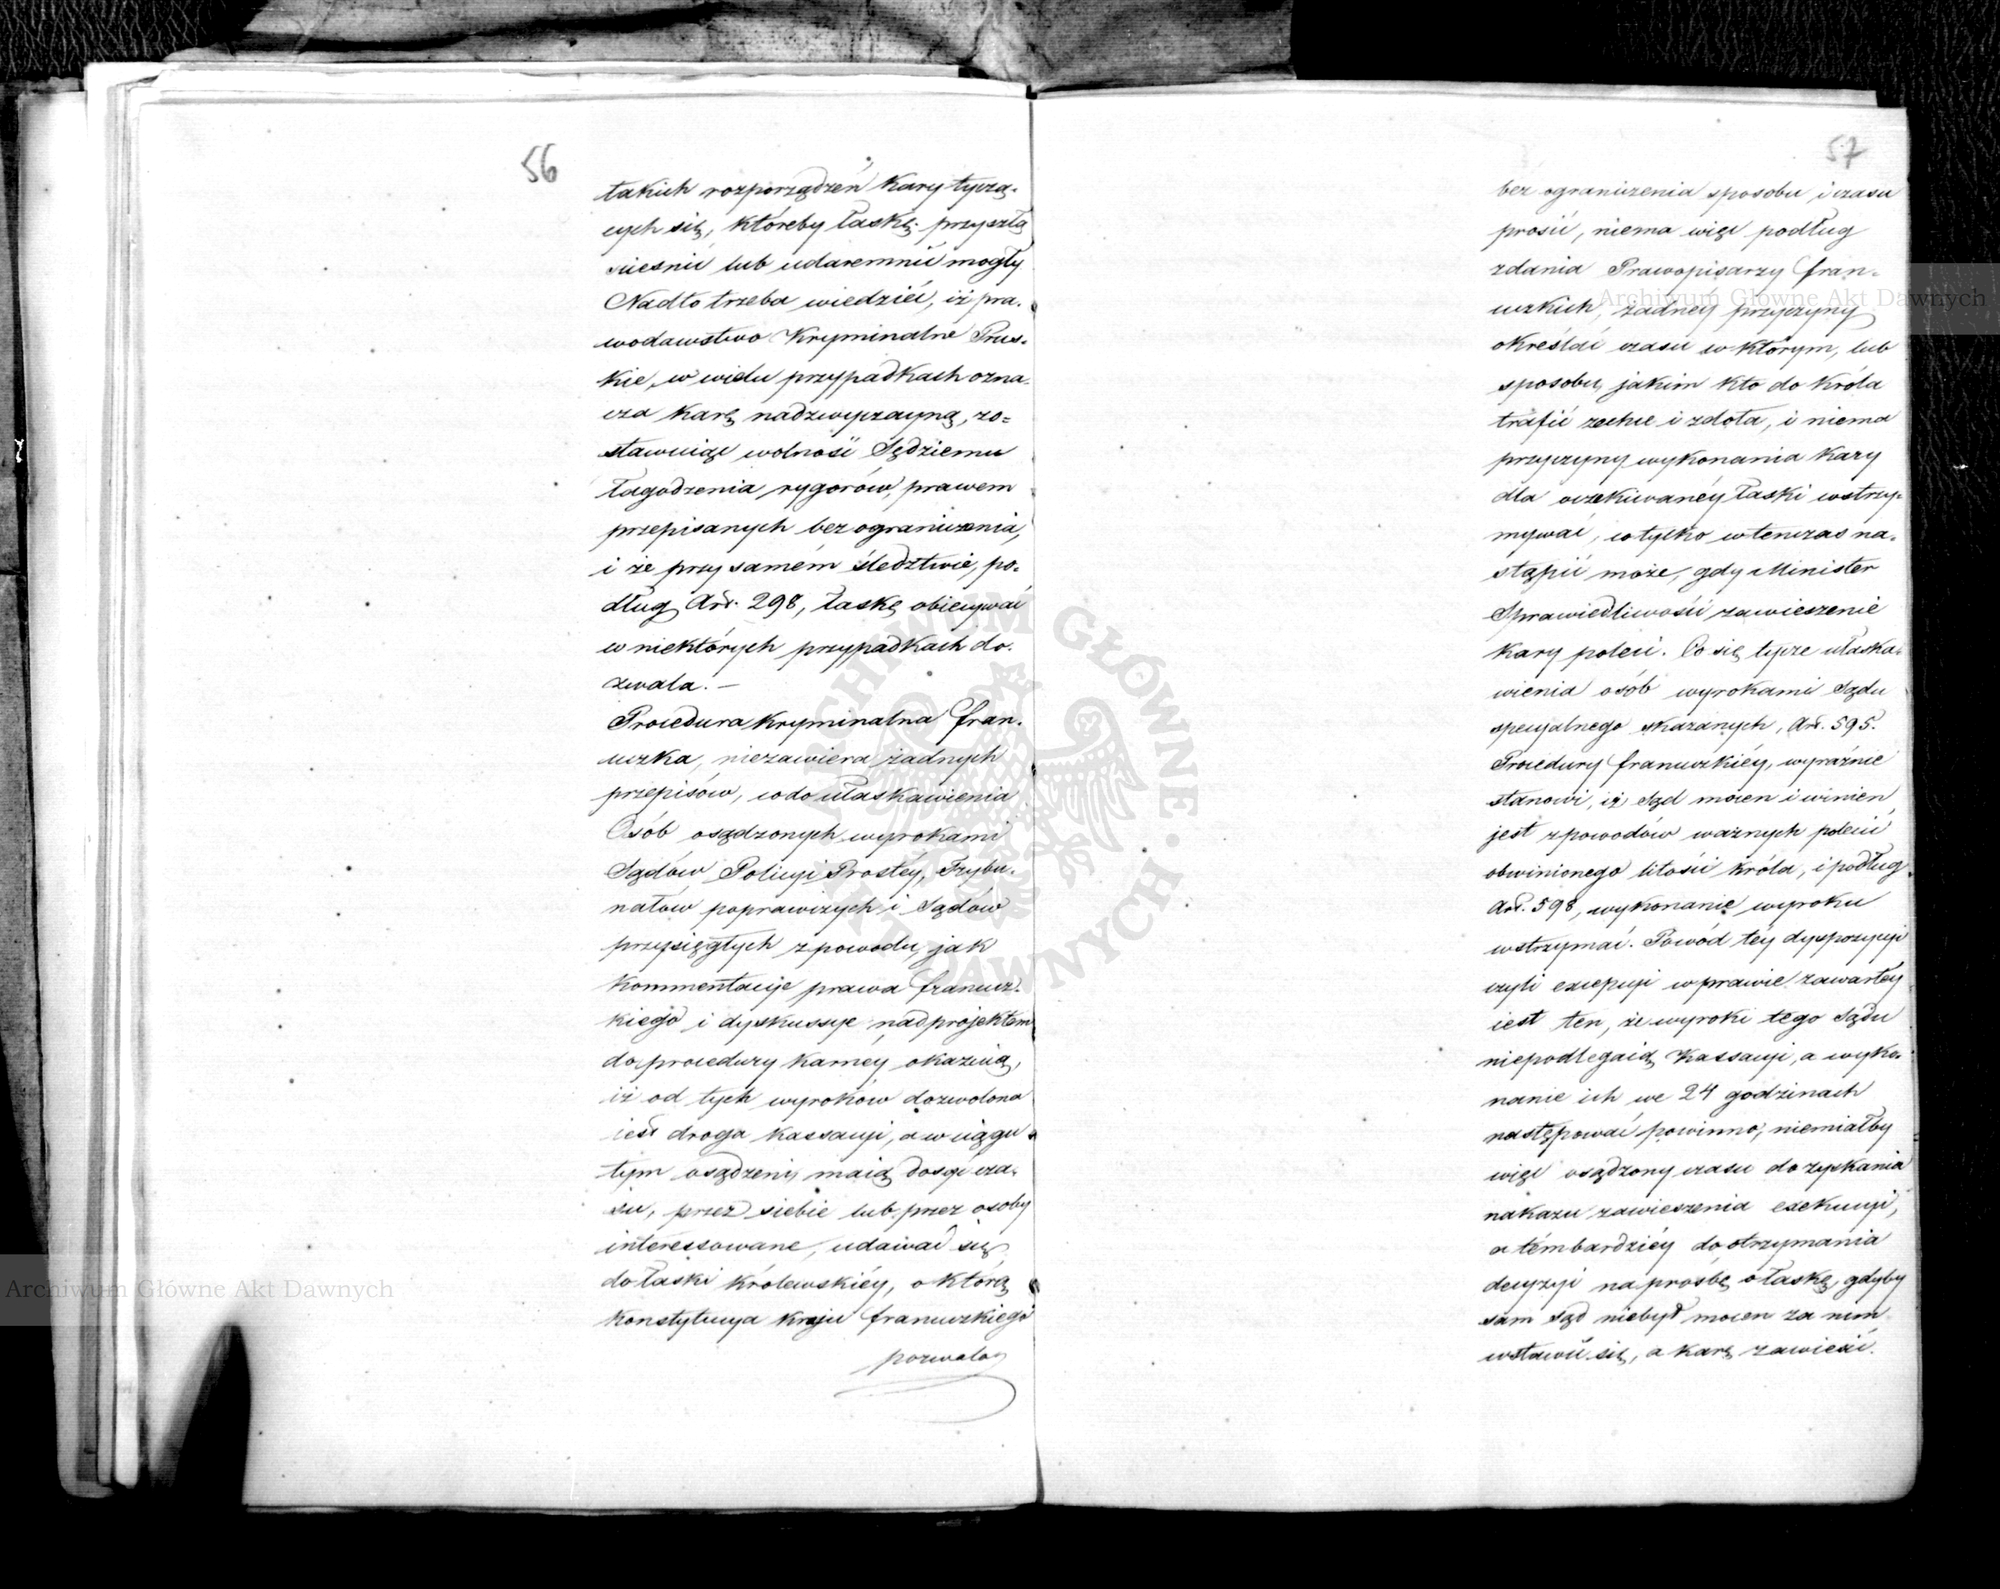 56
takich rozporządzeń kary tyczą-
cych się, któreby łaskę przyszłą
ścieśnić lub udaremnić mogły
Nadto trzeba wiedzieć, iż pra-
wodawstwo Kryminalne Prus-
kie, w wielu przypadkach ozna-
cza karę nadzwyczayną, zo-
stawuiąc wolność Sędziemu
łagodzenia rygorów, prawem
przepisanych bez ograniczenia,
i że przy samém śledztwie, po-
dług Art. 298, łaskę obiecywać
w niektórych przypadkach do-
zwala. —
Procedura kryminalna fran-
cuzka, niezawiera żadnych
przepisów, co do ułaskawienia
Osób osądzonych wyrokami
Sądów Policyi Prostéy, Trybu-
nałów poprawczych i Sądów
przysięgłych z powodu, jak
Kommentacije prawa francuz-
kiego i dyskussye nad projektem
do procedury karney okazuią,
iż od tych wyroków dozwolona
iest droga kassacyi, a w ciągu
tym osądzeni maią dosyć cza-
su, przez siebie lub przez osoby
interessowane, udawać się
do łaski Królewskiéy, o którą
Konstytucya kraju francuzkiego
pozwala
57
bez ograniczenia sposobu i czasu
prosić, niema więc podług
zdania Prawopisarzy fran-
cuzkich, żadnéy przyczyny
określać czasu w którym, lub
sposobu, jakim kto do Króla
trafić zechce i zdoła, i niema
przyczyny wykonania kary
dla oczekiwanéy łaski wstrzy-
mywać, co tylko wtenczas na-
stąpić może, gdy Minister
Sprawiedliwości zawieszenie
kary poleci. Co się tycze ułaska-
wienia osób wyrokami Sądu
specyalnego skazanych, Art. 595.
Procedury francuzkiéy, wyraźnie
stanowi, iż Sąd mocen i winien
jest z powodów ważnych polecić
obwinionego litości Króla, i podług
Art. 598, wykonanie wyroku
wstrzymać. Powód téy dyspozycyi
czyli excepcyi w prawie zawartéy
iest ten, że wyroki tego Sądu
niepodlegaią Kassacyi, a wyko-
nanie ich we 24 godzinach
następować powinno, niemiałby
więc osądzony czasu do zyskania
nakazu zawieszenia exekucyi,
a témbardziéy do otrzymania
decyzyi na prośbę o łaskę, gdyby
sam Sąd niebył mocen za nim
wstawić się, a karę zawiesić.
Archiwum Główne Akt Dawnych
Archiwum Główne Akt Dawnych
ARCHIWUM GŁÓWNE AKT DAWNYCH